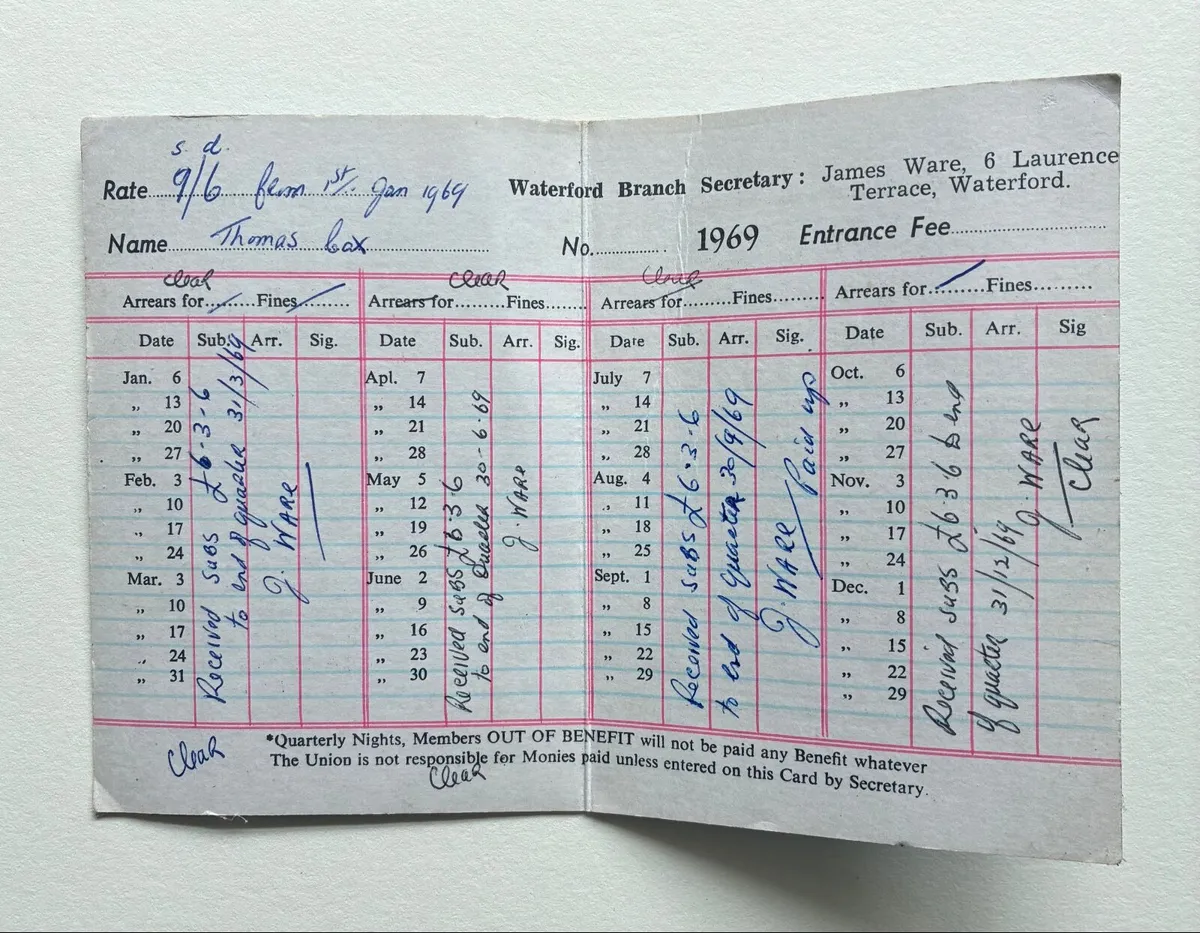 s. d.
Rate 9/6 from 1st. Jan 1969
Waterford Branch Secretary: James Ware, 6 Laurence
Terrace, Waterford.
Name Thomas Cox
No. 1969 Entrance Fee
Clear
Arrears for Fines
Date Sub. Arr. Sig.
Jan. 6
„ 13
„ 20
„ 27
Feb. 3
„ 10
„ 17
„ 24
Mar. 3
„ 10
„ 17
„ 24
„ 31
Received SUBS £6-3-6
to end of quarter 31/3/69
J. WARE
Clear
Clear
Arrears for Fines
Date Sub. Arr. Sig.
Apl. 7
„ 14
„ 21
„ 28
May 5
„ 12
„ 19
„ 26
June 2
„ 9
„ 16
„ 23
„ 30
Received SUBS £6-3-6
to end of Quarter 30-6-69
J. WARE
Clear
Arrears for Fines
Date Sub. Arr. Sig.
July 7
„ 14
„ 21
„ 28
Aug. 4
„ 11
„ 18
„ 25
Sept. 1
„ 8
„ 15
„ 22
„ 29
Received SUBS £6-3-6
to end of quarter 30/9/69
J. WARE Paid up
Arrears for Fines
Date Sub. Arr. Sig
Oct. 6
„ 13
„ 20
„ 27
Nov. 3
„ 10
„ 17
„ 24
Dec. 1
„ 8
„ 15
„ 22
„ 29
Received SUBS £6 3 6 to end
of quarter 31/12/69
J. WARE
Clear
*Quarterly Nights, Members OUT OF BENEFIT will not be paid any Benefit whatever
The Union is not responsible for Monies paid unless entered on this Card by Secretary.
Clear